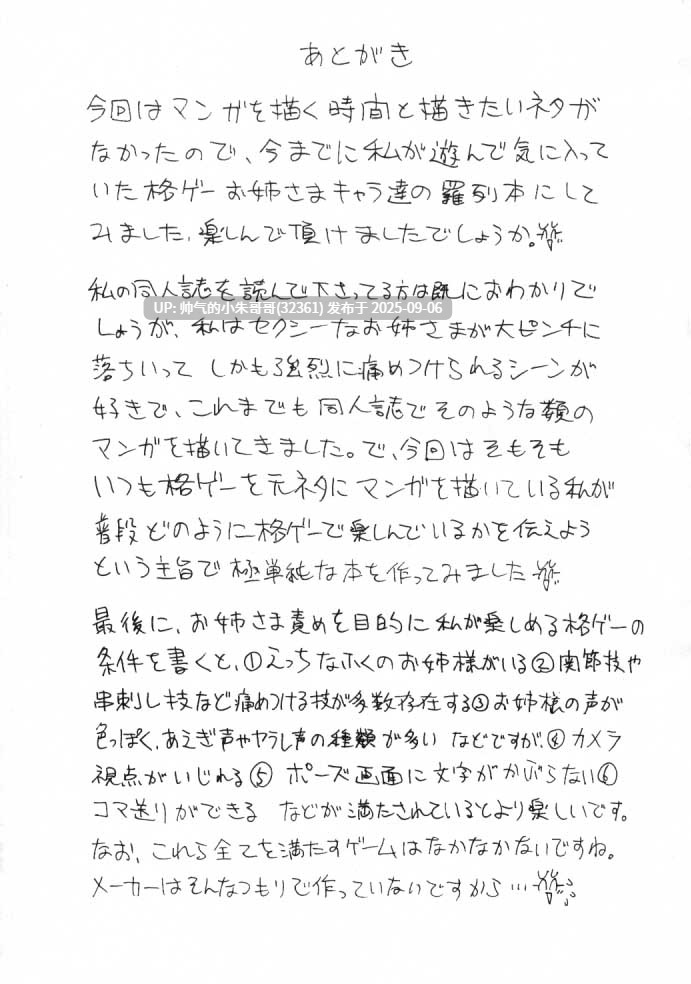 あとがき
今回はマンガを描く時間と描きたいネタが
なかったので、今までに私が遊んで気に入って
いた格ゲーお姉さまキャラ達の羅列本にして
みました。楽しんで頂けましたでしょうか。
私の同人誌を読んで下さってる方は既におわかりで
UP: 帅气的小朱哥哥(32361) 发布于 2025-09-06
しょうが、私はセクシーなお姉さまが大ピンチに
落ちいって しかも強烈に痛めつけられるシーンが
好きで、これまでも同人誌でそのような類の
マンガを描いてきました。で、今回はそもそも
いつも格ゲーを元ネタにマンガを描いている私が
普段どのように格ゲーで楽しんでいるかを伝えよう
という主旨で極単純な本を作ってみました
最後に、お姉さま責めを目的に私が楽しめる格ゲーの
条件を書くと、①えっちなふくのお姉様がいる②関節技や
串刺し技など痛めつける技が多数存在する③お姉様の声が
色っぽく、あえぎ声やヤラレ声の種類が多い などですが、④カメラ
視点がいじれる⑤ ポーズ画面に文字がかぶらない⑥
コマ送りができる などが満たされているとより楽しいです。
なお、これら全てを満たすゲームはなかなかないですね。
メーカーはそんなつもりで作っていないですから…